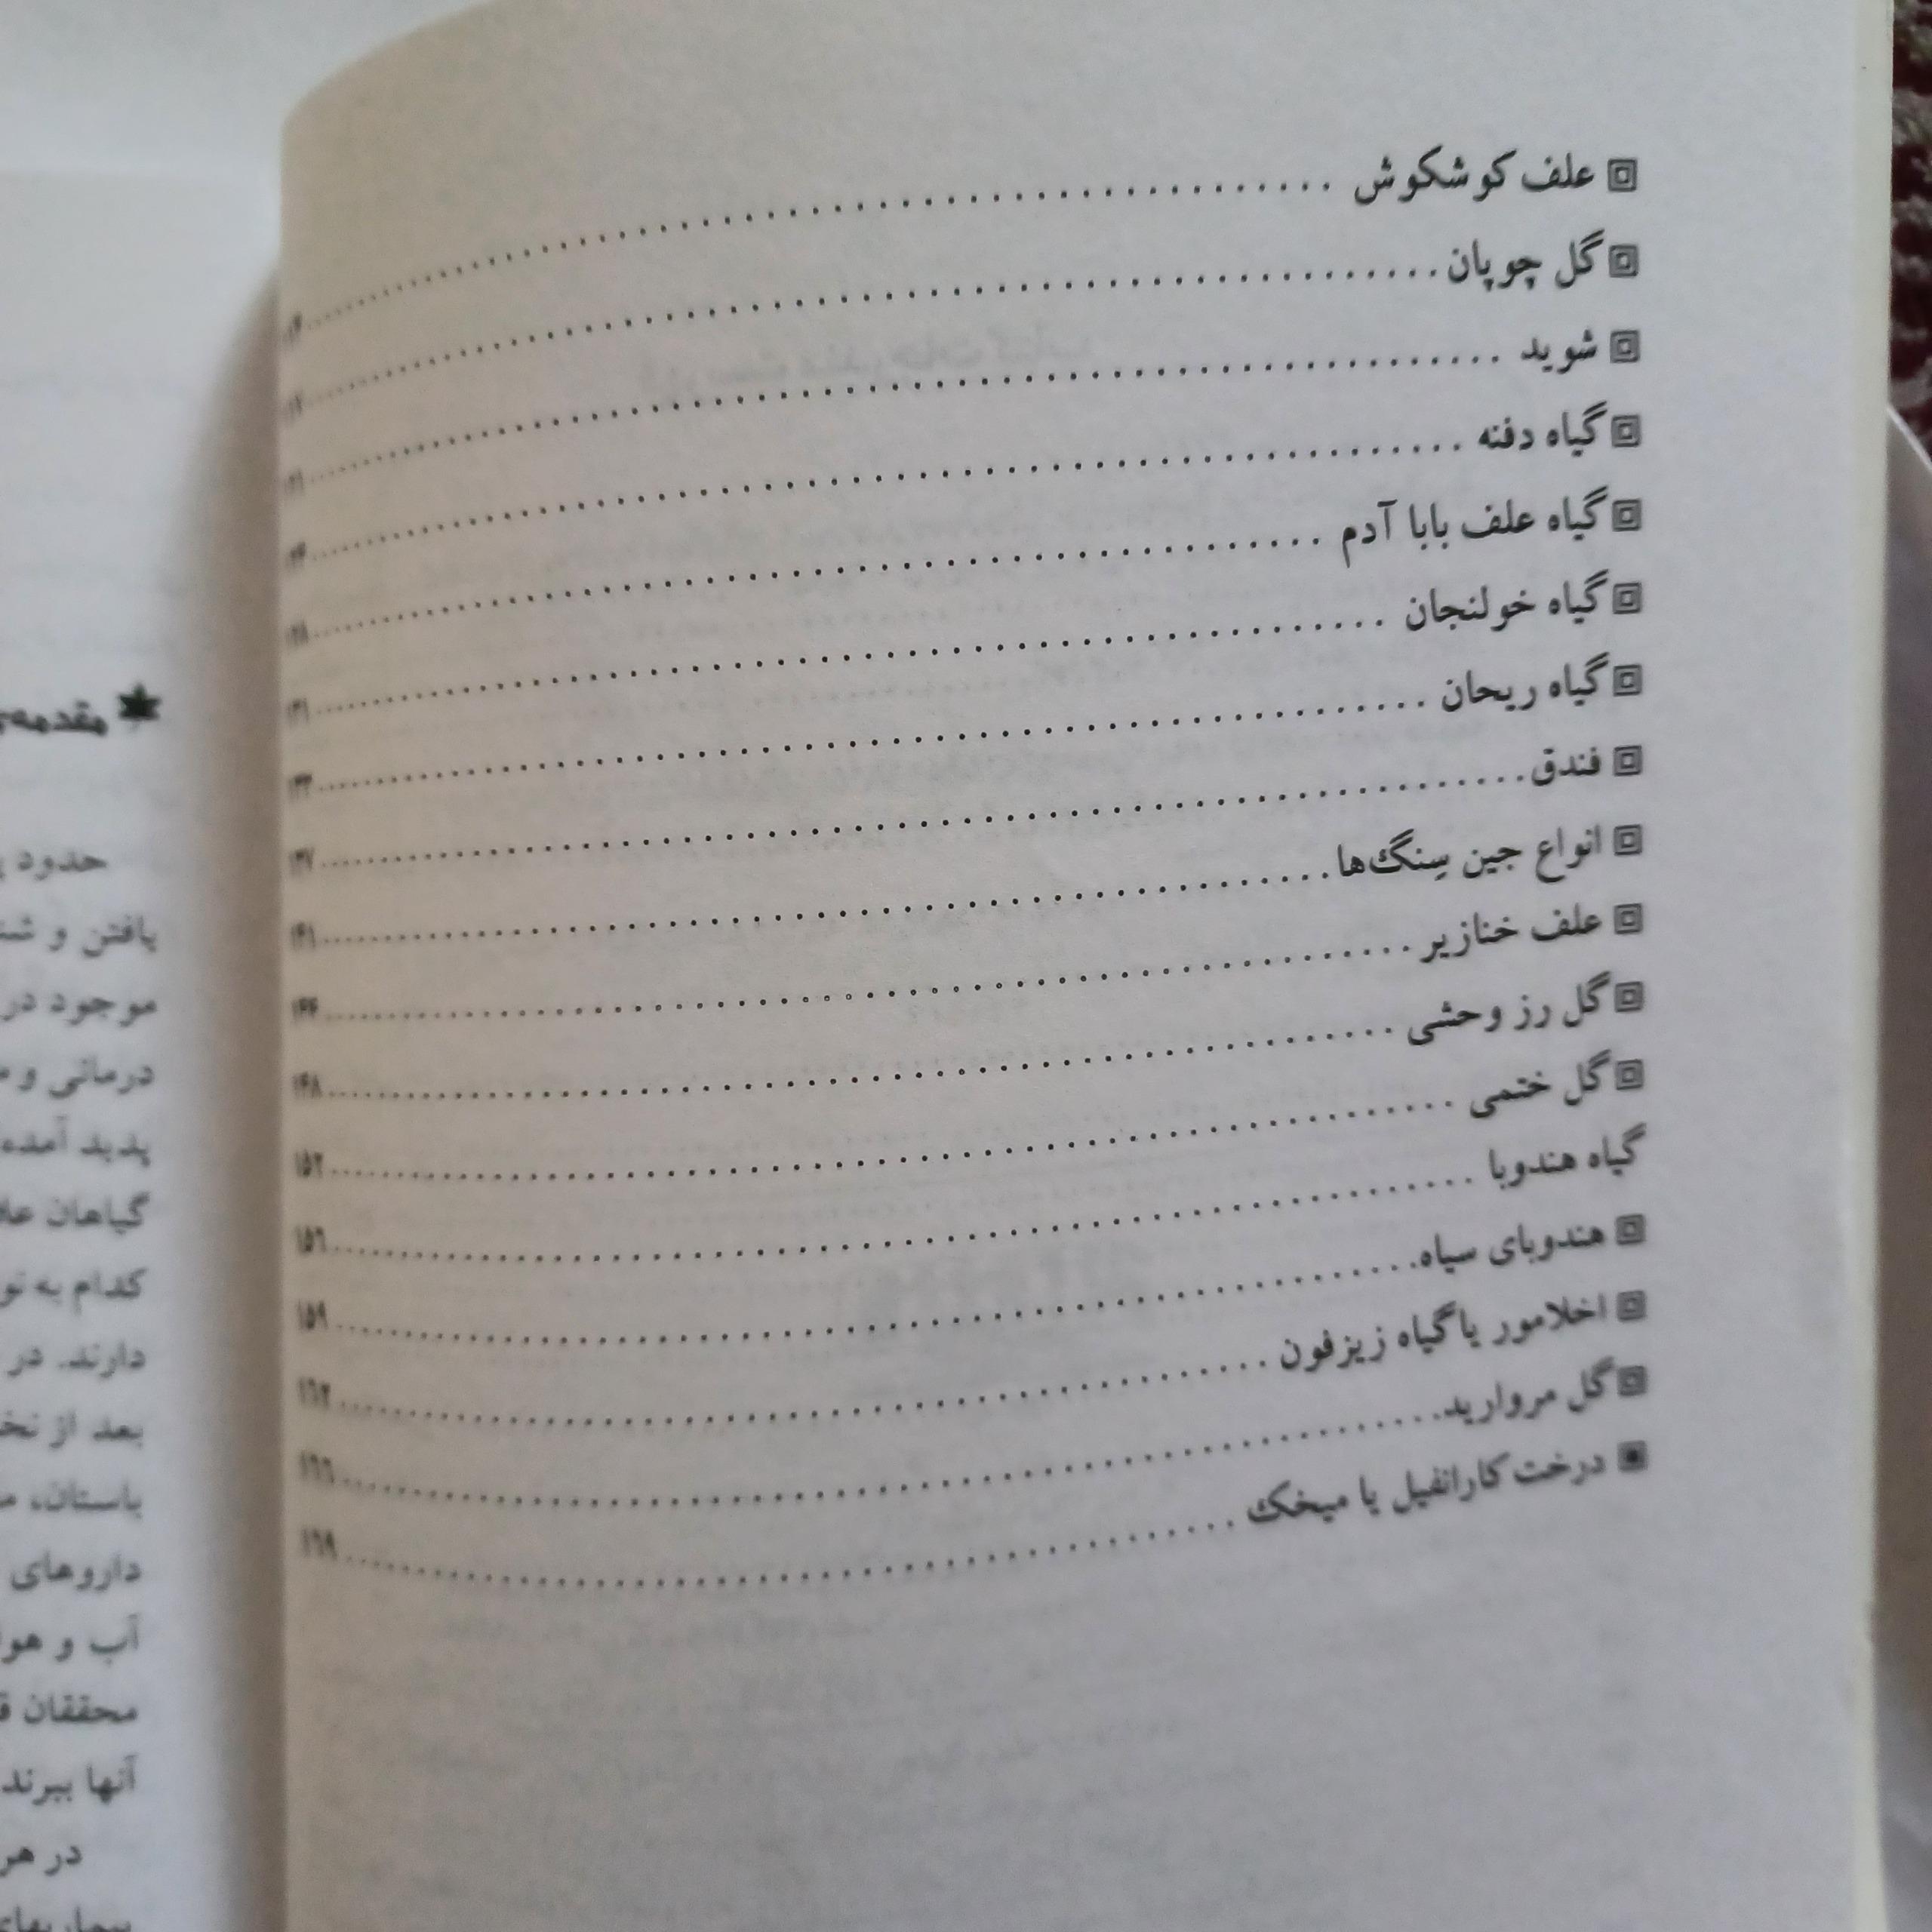 علف کوشکوش
گل چوپان
شوید
گیاه دفنه
گیاه علف بابا آدم ........ ۱۲۸
گیاه خولنجان ........ ۱۳۱
گیاه ریحان ........ ۱۳۳
فندق ........ ۱۳۷
انواع جین سِنگ‌ها ........ ۱۴۱
علف خنازیر ........ ۱۴۴
گل رز وحشی ........ ۱۴۸
گل ختمی ........ ۱۵۲
گیاه هندوبا ........ ۱۵۶
هندوبای سیاه ........ ۱۵۹
اخلامور یا گیاه زیزفون ........ ۱۶۲
گل مروارید ........ ۱۶۶
درخت کارانفیل یا میخک ........ ۱۶۹
مقدمه‌ی
حدود
یافتن و
موجود در
درمانی و
پدید آمده
گیاهان
کدام به
دارند. در
بعد از
باستان،
داروهای
آب و
محققان
آنها ببرند
در هر